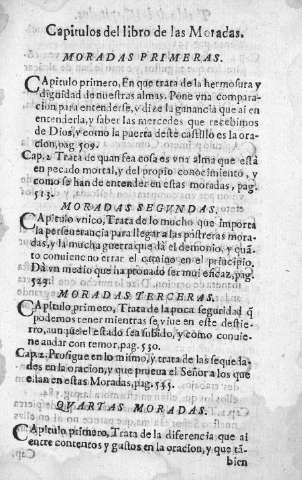 Capitulos del libro de las Moradas.
MORADAS PRIMERAS.
CApitulo primero, En que trata de la hermosura y
dignidad de nuestras almas. Pone vna compara-
cion para entenderse, y dize la ganancia que ai en
entenderla, y saber las mercedes que recebimos
de Dios, y como la puerta deste castillo es la ora-
cion, pag. 509.
Cap. 2 Trata de quan fea cosa es vna alma que està
en pecado mortal, y del propio conocimiento, y
como se han de entender en estas moradas, pag.
513.
MORADAS SEGVNDAS.
CApitulo vnico, Trata de lo mucho que importa
la perseuerancia para llegar a las postreras mora-
das, y la mucha guerra que dà el demonio, y quãto
conuiene no errar el camino en el principio.
Dà vn medio que ha prouado ser mui eficaz, pag.
MORADAS TERCERAS.
CApitulo primero, Trata la poca seguridad q̃
podemos tener mientras se viue en este destie-
rro, aunque el estado sea subido, y como conuie-
ne andar con temor, pag. 530.
Cap. 2. Prosigue en lo mismo, y trata de las sequeda-
des en la oracion, y que prueua el Señor a los que
están en estas Moradas, pag.
QVARTAS MORADAS.
CApitulo primero, Trata de la diferencia que ai
entre contentos y gustos en la oracion, y que tã-
bien